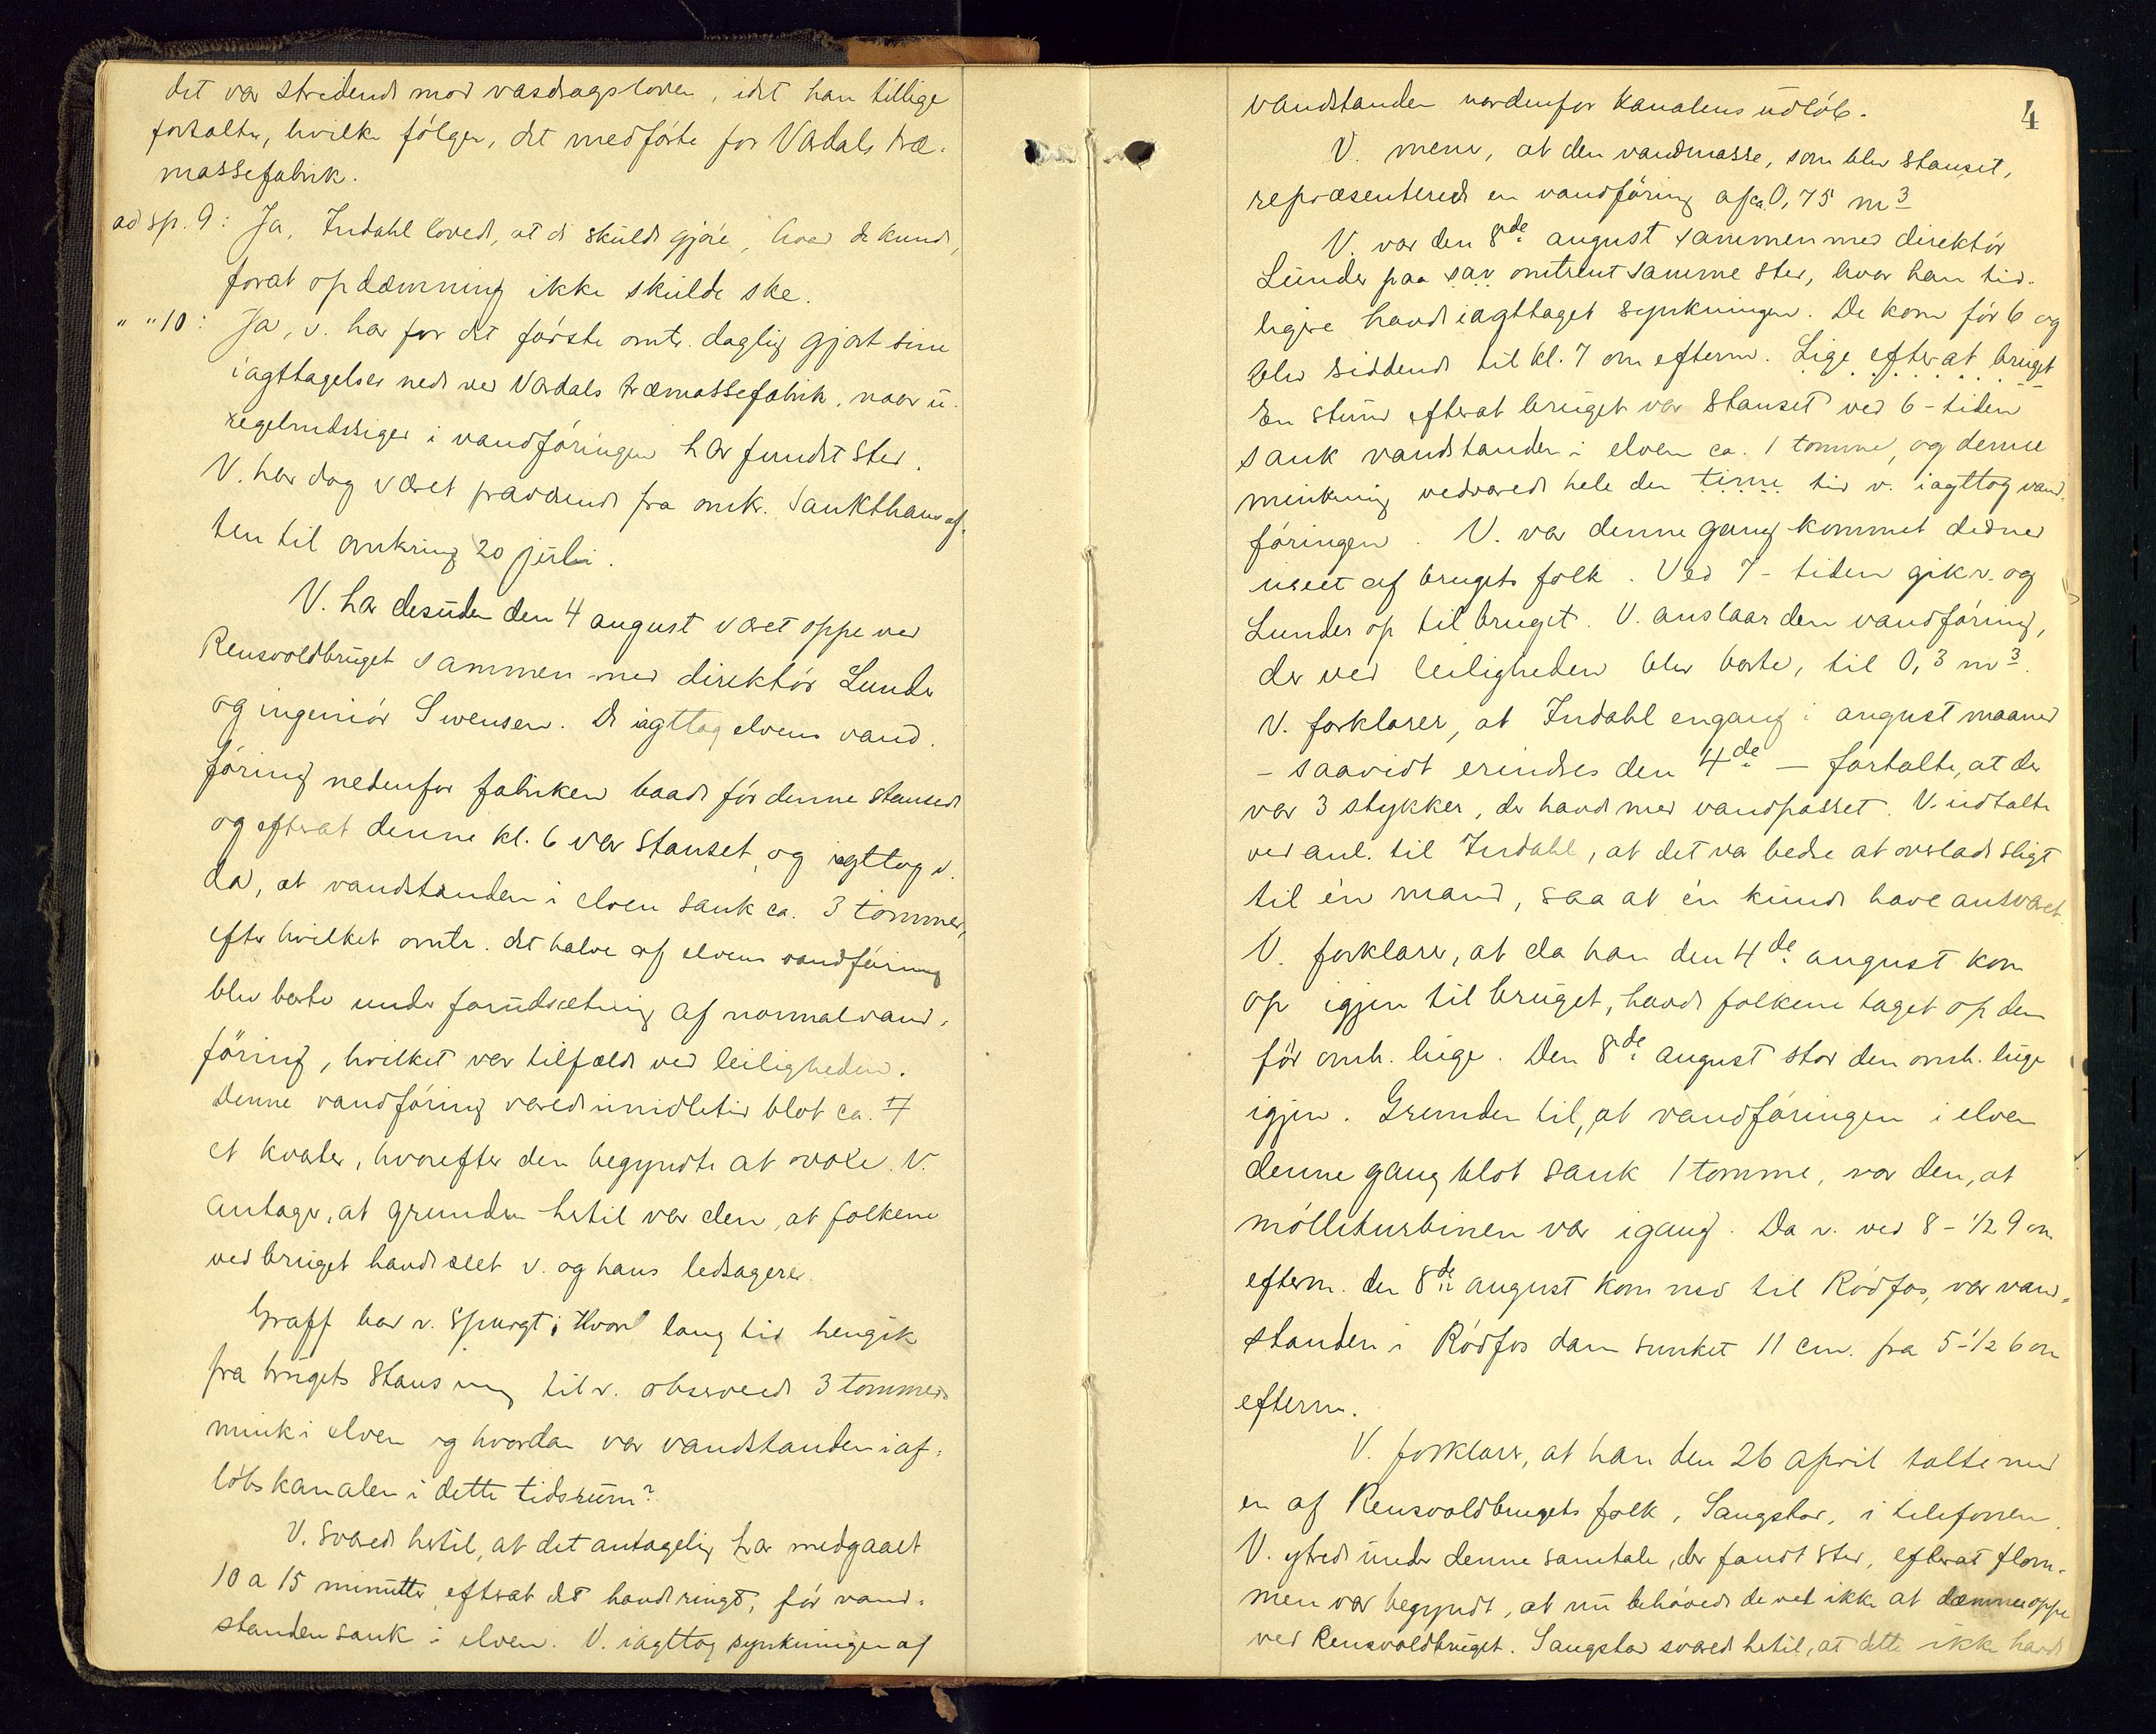 det var stridende mod vasdragsloven, idet han tillige
fortalte, hvilke følger, det medførte for Vardals træ-
massefabrik.
ad sp. 9: Ja, Indahl lovede, at de skulde gjøre, hvad de kunde,
forat opdæmning ikke skulde ske.
" " 10: Ja, v. har for det første omtr. daglig gjort sine
iagttagelser nede ved Vardals træmassefabrik, naar u-
regelmæssiger i vandføringen har fundet sted.
V. har dog været fraværende fra omkr. Sankthansaf-
ten til omkring 20 juli.
V. har desuden den 4 august været oppe ved
Rensvoldbruget sammen med direktør Lunde
og ingeniør Swensen. De iagttog elvens vand-
føring nedenfor fabriken baade før denne stansede
og efterat denne kl. 6 var stanset, og iagttog v.
da, at vandstanden i elven sank ca. 3 tommer,
efter hvilket omtr. det halve af elvens vandføring
blev borte under forudsætning af normalvand-
føring, hvilket var tilfælde ved leiligheden.
Denne vandføring varede imidlertid blot ca. 7
et kvarter, hvorefter den begyndte at voxe. V.
antager, at grunden hertil var den, at folkene
ved bruget havde seet v. og hans ledsagere.
Graff har v. spurgt: Hvor lang tid hengik
fra brugets stansning til v. observerede 3 tommers
mink i elven og hvordan var vandstanden i af-
løbskanalen i dette tidsrum?
V. svarede hertil, at det antagelig har medgaaet
10 a 15 minutter efterat det havde ringt, før vand-
standen sank i elven. V. iagttog synkningen af
4
vandstanden nordenfor kanalens udløb.
V. mener, at den vandmasse, som blev stanset,
repræsenterede en vandføring af ca. 0,75 m3
V. var den 8de august sammen med direktør
Lunde paa sav omtrent samme sted, hvor han tid-
ligere havde iagttaget synkningen. De kom før 6 og
blev siddende til kl. 7 om efterm. Lige efterat bruget
En stund efterat bruget var stanset ved 6-tiden
sank vandstanden i elven ca. 1 tomme, og denne
minkning vedvarede hele den time tid v. iagttog vand-
føringen. V. var denne gang kommet didned
useet af brugets folk. Ved 7-tiden gik v. og
Lunde op til bruget. V. anslaar den vandføring,
der ved leiligheden blev borte, til 0,3 m3.
V. forklarer, at Indahl engang i august maaned
- saavidt erindres den 4de - fortalte, at der
var 3 stykker, der havde med vandpasset. V. udtalte
ved anl. til Indahl, at det var bedre at overlade sligt
til én mand, saa at én kunde have ansvaret
V. forklarer, at da han den 4de august kom
op igjen til bruget, havde folkene taget op den
før omh. luge. Den 8de august stod den omh. luge
igjen. Grunden til, at vandføringen i elven
denne gang blot sank 1 tomme, var den, at
mølleturbinen var igang. Da v. ved 8-1/2 9 om
efterm. den 8de august kom ned til Rødfos, var vand-
standen i Rødfos dam sunket 11 cm. fra 5-1/2 6 om
efterm.
V. forklarer, at han den 26 april talte med
en af Rensvoldbrugets folk, Sangstad, i telefonen.
V. ytrede under denne samtale, der fandt sted, efterat flom-
men var begyndt, at nu behøvede de vel ikke at dæmme oppe
ved Rensvoldbruget. Sangstad svarede hertil, at dette ikke havde